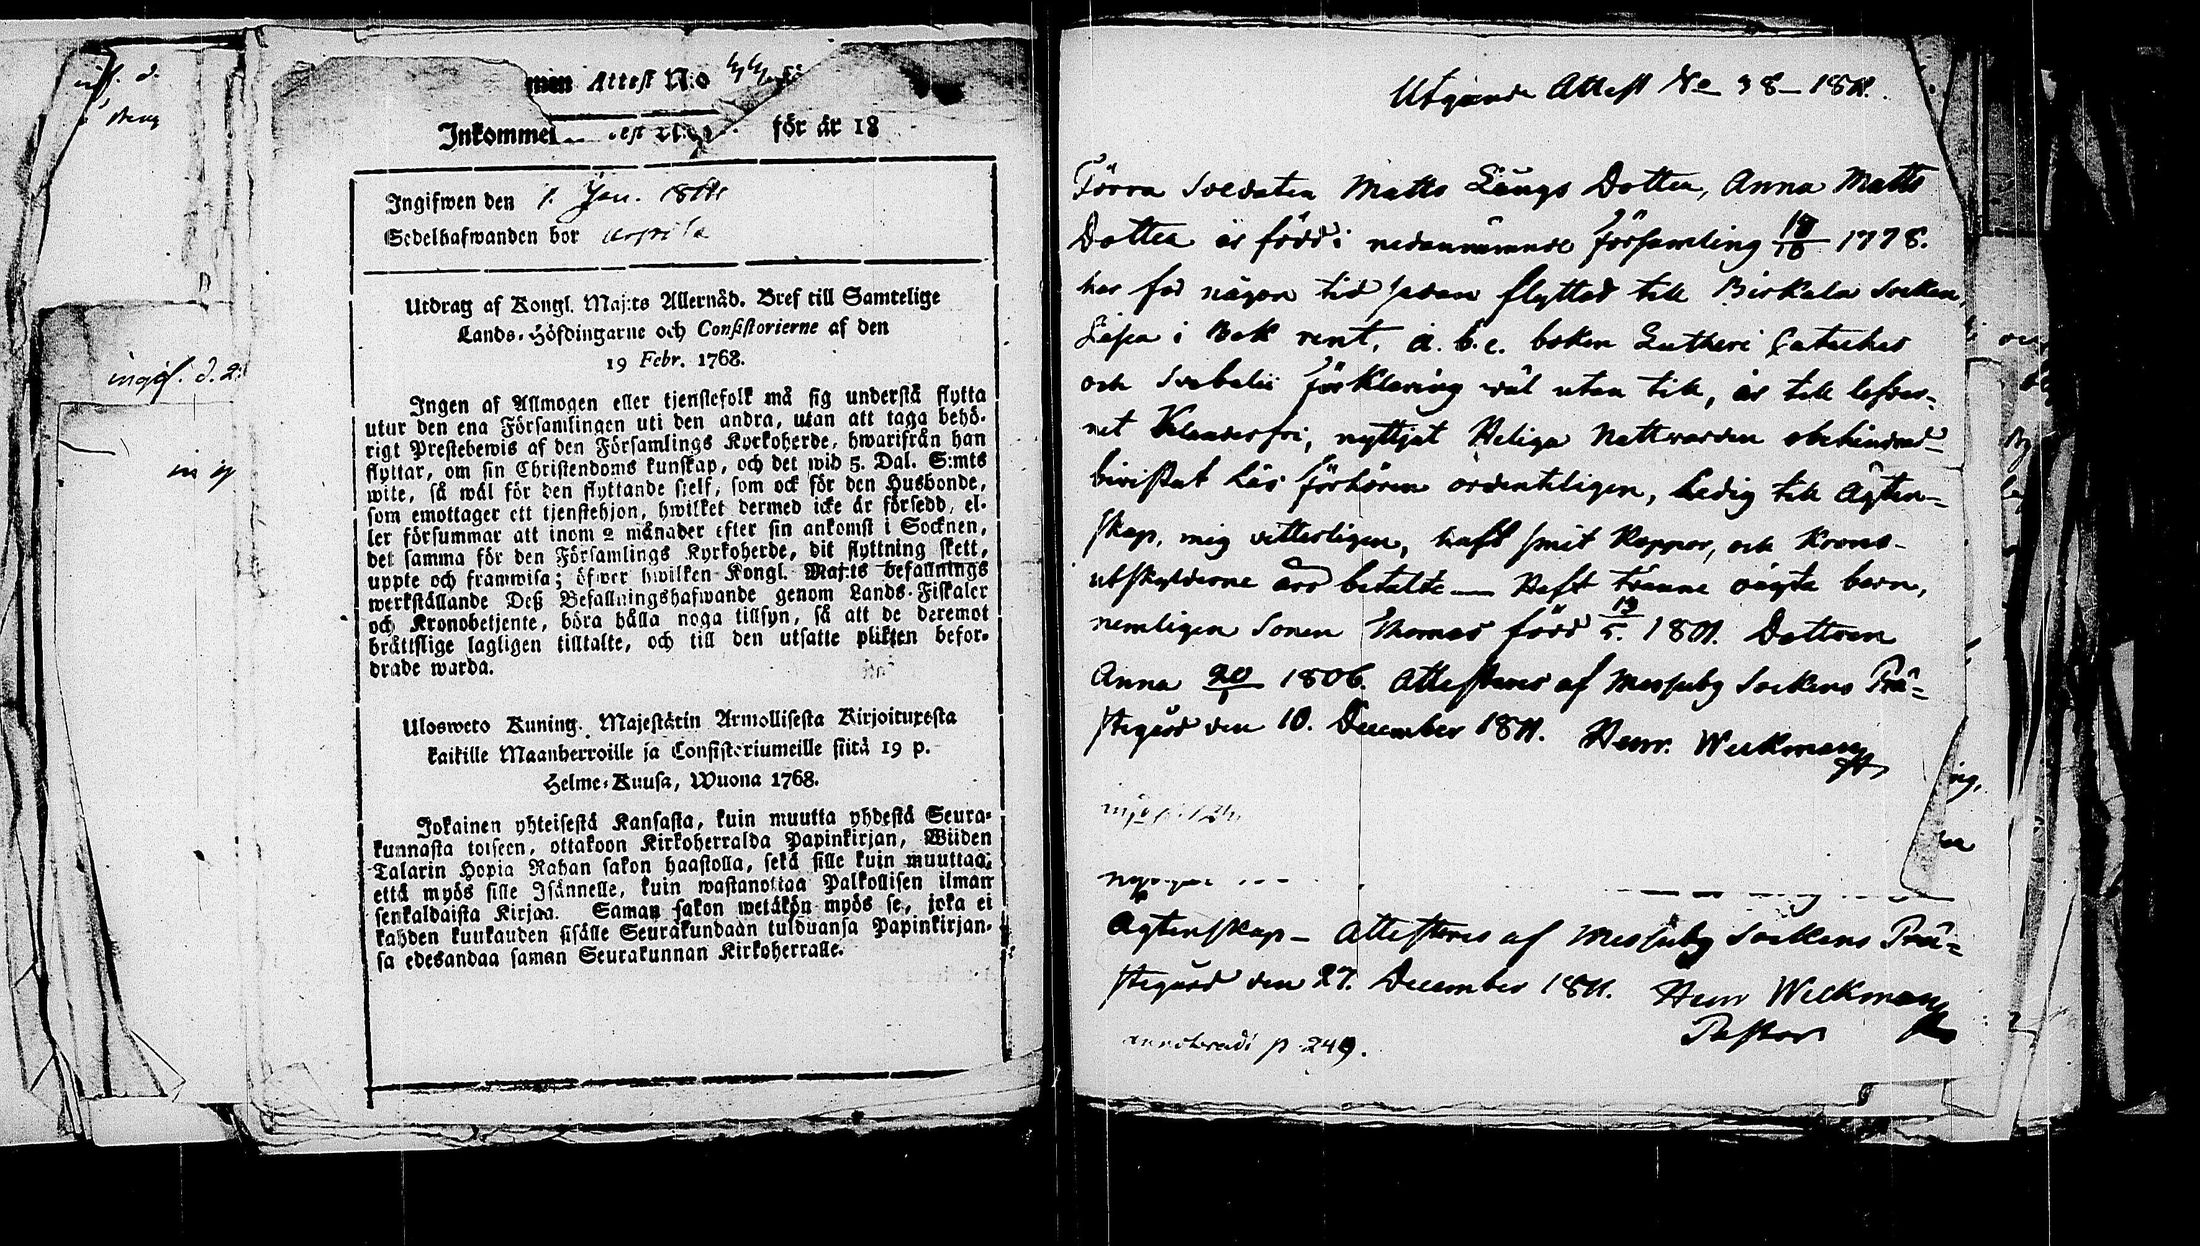 inf. d.
ingif. d. 2
men Attest N:o
Inkommen est för år 18
Ingifwen den 1. Jan. 1811
Sedelhafwanden bor
Utdrag af Kongl. Maj:ts Allernåd. Bref till Samtelige
Lands-Höfdingarne och Consistorierne af den
19 Febr. 1768.
Ingen af Allmogen eller tjenstefolk må sig understå flytta
utur den ena Församlingen uti den andra, utan att taga behö-
rigt Prestebewis af den Församlings Kyrkoherde, hwarifrån han
flyttar, om sin Christendoms kunskap, och det wid 5. Dal. S:mts
wite, så wäl för den flyttande sielf, som ock för den Husbonde,
som emottager ett tjenstehjon, hwilket dermed icke är försedd, el-
ler försummar att inom 2 månader efter sin ankomst i Socknen,
det samma för den Församlings Kyrkoherde, dit flyttning skett,
uppte och framwisa; öfwer hwilken Kongl. Maj:ts befallnings
werkställande Deß Befallningshafwande genom Lands-Fiskaler
och Kronobetjente, böra hålla noga tillsyn, så att de deremot
bråttslige lagligen tilltalte, och till den utsatte plikten befor-
drade warda.
Ulosweto Kuning. Majestätin Armollisesta Kirjoituxesta
kaikille Maanherroille ja Consistoriumeille siitä 19 p.
Helme-Kuusa, Wuona 1768.
Jokainen yhteisestä Kansasta, kuin muutta yhdestä Seura-
kunnasta toiseen, ottakoon Kirkoherralda Papinkirjan, Wiiden
Talarin Hopia Rahan sakon haastolla, sekä sille kuin muuttaa,
että myös sille Isännelle, kuin wastanottaa Palkollisen ilman
senkaldaista Kirjaa. Saman sakon wetäkön myös se, joka ei
kahden kuukauden sisälle Seurakundaan tulduansa Papinkirjan-
sa edesandaa saman Seurakunnan Kirkoherralle.
Utgånde Attest No 38 - 1811.
Förra Soldaten Matts Längs Dotter, Anna Matts
Dotter är född i nedannämnde Församling 1778.
har för någon tid sedan flyttad till Birkala Socken,
Läsa i Bok rent, a. b. c. boken Lutheri Cateches
och Svebelii Förklaring wäl utan till, är till lefver-
net Klanderfri, nyttjat Heliga Nattvarden obehindrad
bivistat läs förhören ordenteligen, Ledig till Ägten-
skap, mig vitterligen, haft smit Koppor, och Krono-
utskylderne äro betalte — Haft tvänne oägta barn,
nemligen Sonen Thomas född 1801. Dottren
Anna 1806. Attesteres af Messuby Sockens Prä-
stegård den 10. December 1811. Henr. Weckman
Ägtenskap - Attesteres af Messuby Sockens Prä-
stegård den 27. December 1811. Henr Weckman
Pastor
p 249.